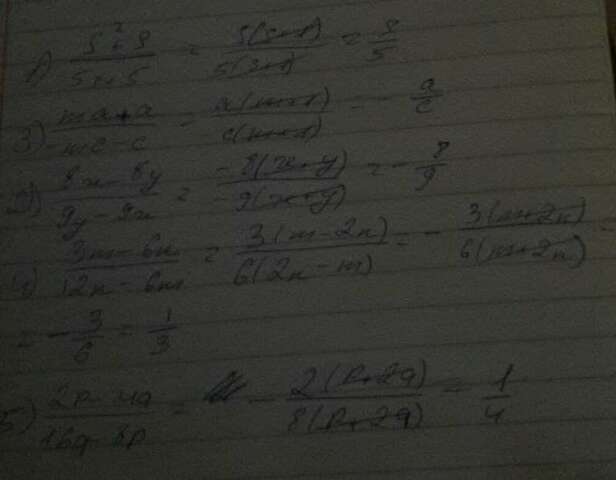 1) \frac{s^2+s}{5s+5} = \frac{s(s+1)}{5(s+1)} = \frac{s}{5}
3) \frac{ma+a}{-mc-c} = \frac{a(m+1)}{c(m+1)} = -\frac{a}{c}
2) \frac{8x-8y}{9y-9x} = \frac{-8(x-y)}{-9(x-y)} = -\frac{8}{9}
4) \frac{3m-6n}{12n-6m} = \frac{3(m-2n)}{6(2n-m)} = -\frac{3(m+2n)}{6(m+2n)} =
= -\frac{3}{6} = \frac{1}{3}
5) \frac{2p-4q}{16q-8p} = -\frac{2(p+2q)}{8(p+2q)} = \frac{1}{4}